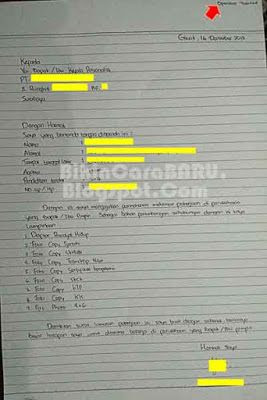 Operator
Garut, 16 Desember 2013
Kepada
Yth Bapak / Ibu Kepala Personalia
PT.
Jl. Rungkut No
Surabaya
Dengan Hormat
Saya yang bertanda tangan dibawah ini :
Nama :
Alamat :
Tempat tanggal lahir :
Agama :
Pendidikan terakhir :
No Telp / Hp :
BikinCaraBARU.
Blogspot.Com
Dengan ini saya mengajukan permohonan melamar pekerjaan di perusahaan
yang Bapak / Ibu Pimpin. Sebagai bahan pertimbangan bersamaan dengan ini saya
lampirkan :
1. Daftar Riwayat Hidup
2. Foto Copy Ijazah
3. Foto Copy
4. Foto Copy Transkip Nilai
5. Foto Copy Sertifikat Kompetensi
6. Foto Copy SKCK
7. Foto Copy KTP
8. Foto Copy KK
9. Pas Photo 4x6
Demikian surat lamaran pekerjaan ini saya buat dengan sebenar benarnya
besar harapan saya untuk diterima bekerja di perusahaan yang Bapak / Ibu pimpin.
Hormat Saya